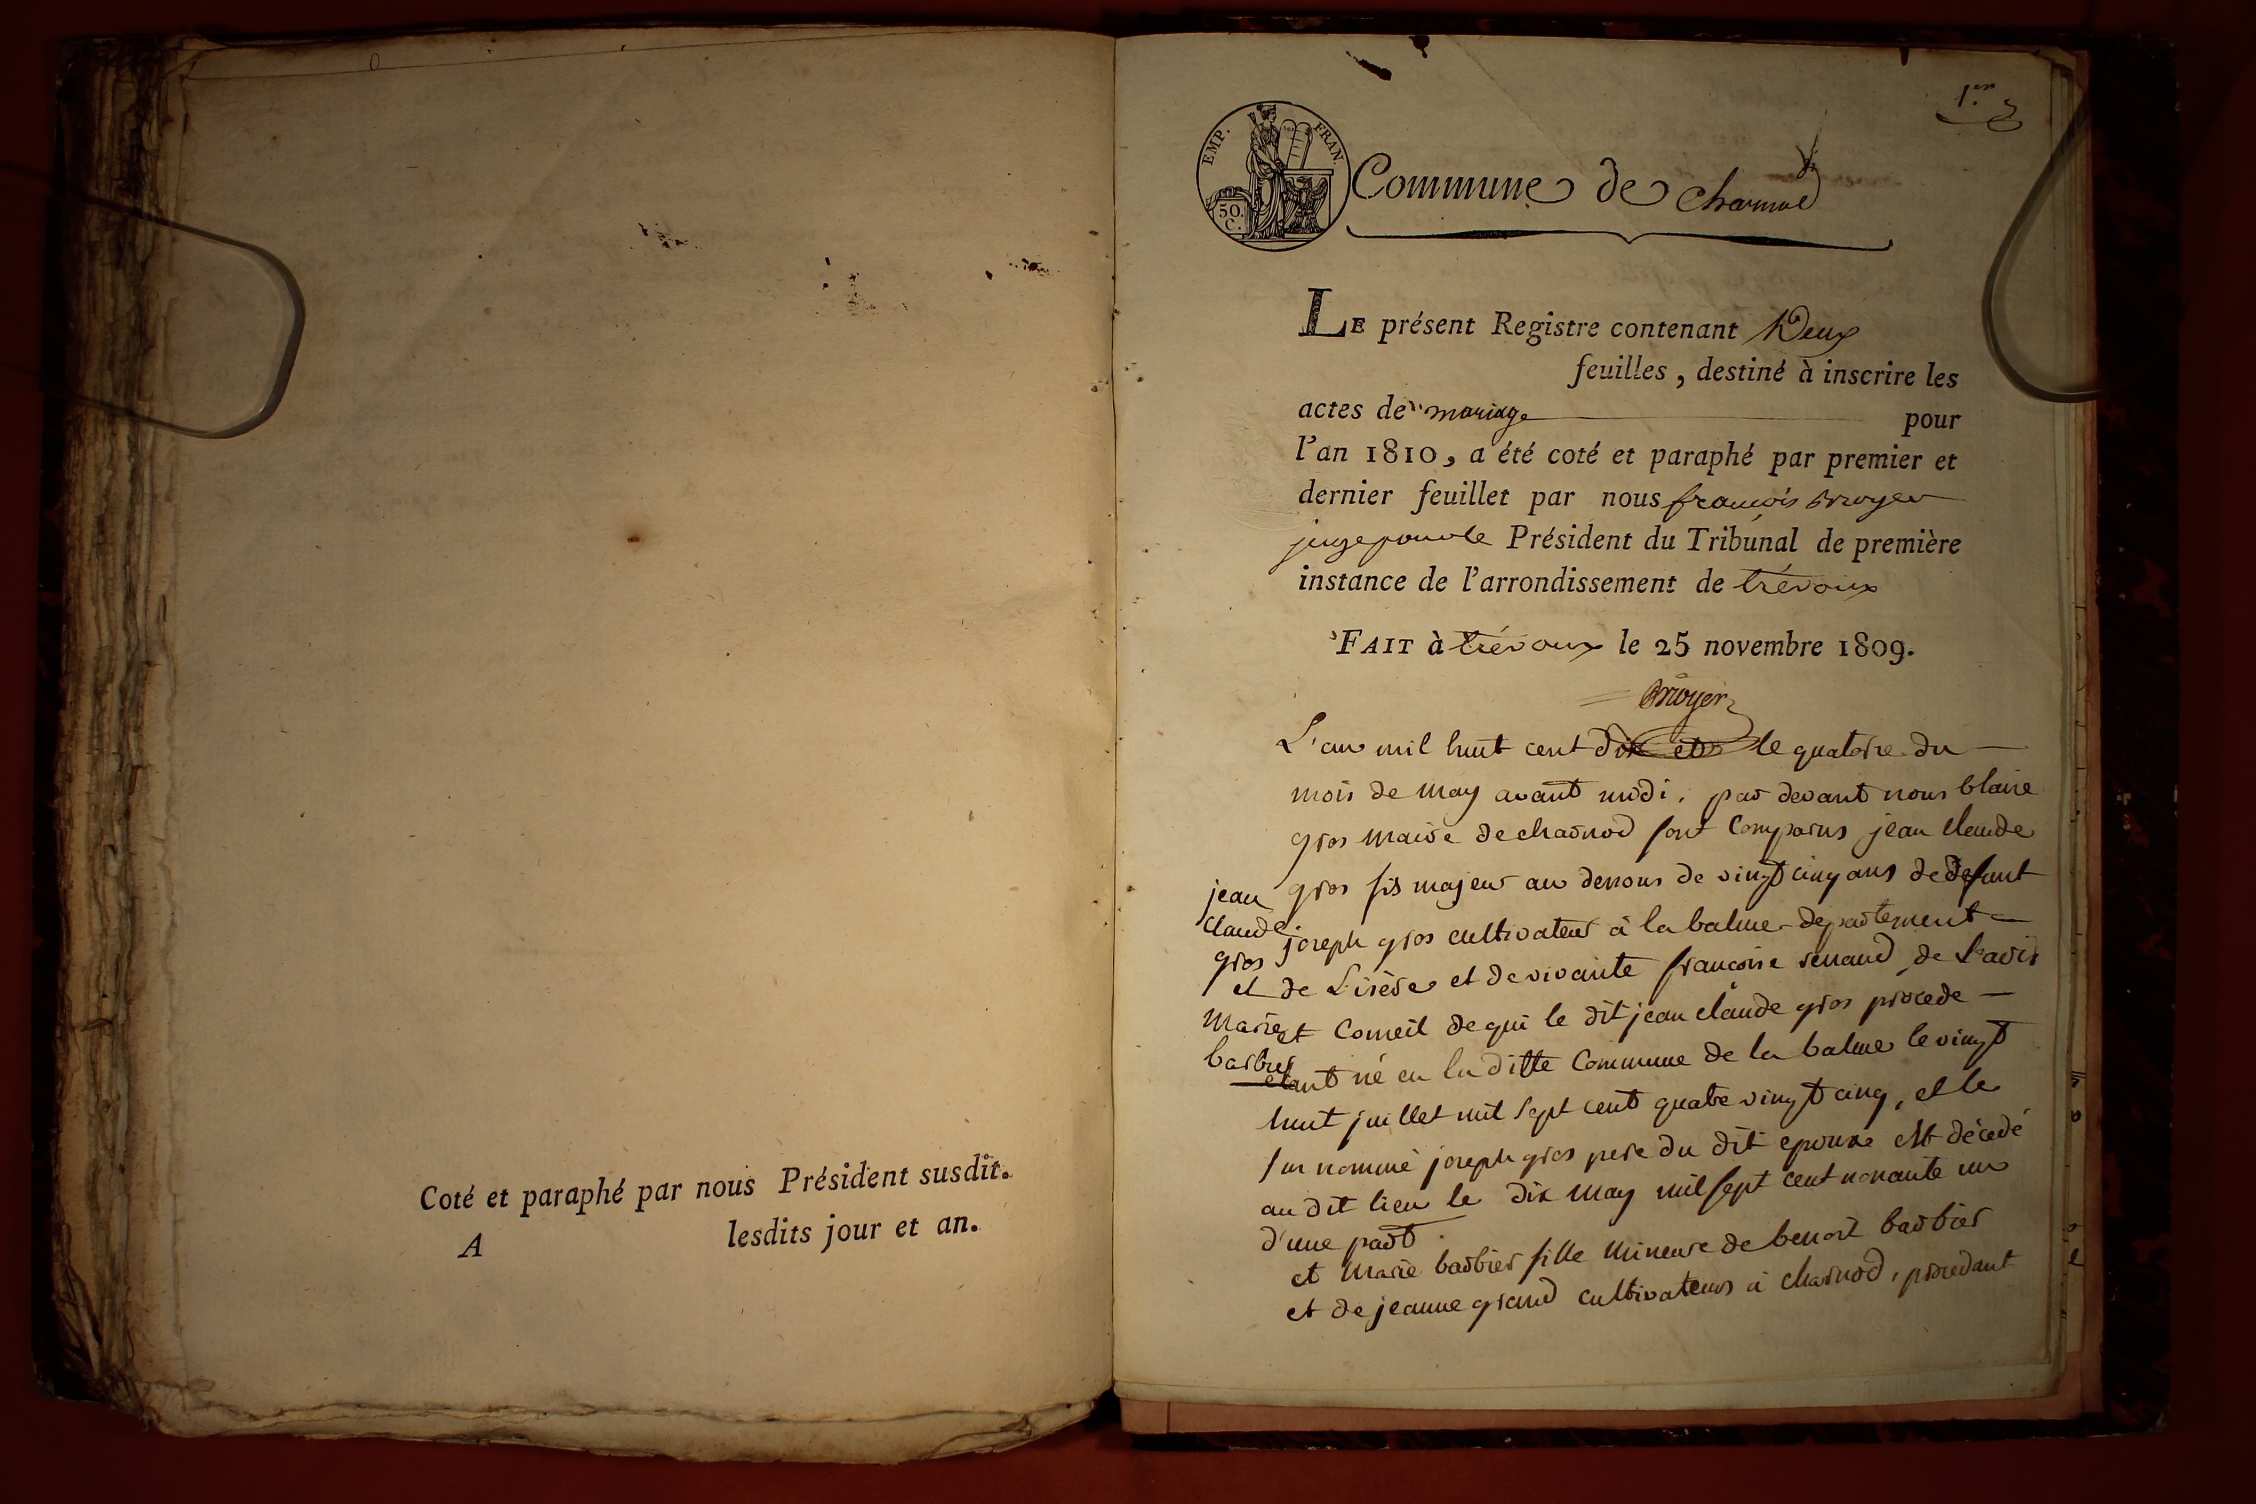 Coté et paraphé par nous Président susdit.
lesdits jour et an.
A
1.er
EMP. FRAN.
50.
C.
Commune de charnod
LE présent Registre contenant Deux
feuilles, destiné à inscrire les
actes de mariage pour
l'an 1810, a été coté et paraphé par premier et
dernier feuillet par nous françois Bruyer
juge pour le Président du Tribunal de première
instance de l'arrondissement de trévoux
FAIT à trévoux le 25 novembre 1809.
L'an mil huit cent dix et le quatorze du
mois de may avant midi, par devant nous blaise
gros maire de charnod sont comparus jean claude
gros fils majeur au dessous de vingt cinq ans de defunt
joseph gros cultivateur à la balme departement
de L'isère et de vivante francoise renaud, de L'avis
et Conseil de qui le dit jean claude gros procede
etant né en la ditte Commune de la balme le vingt
huit juillet mil sept cent quatre vingt cinq, et le
sus nommé joseph gros pere du dit epoux est décedé
au dit lieu le dix may mil sept cent nonante un
d'une part.
et Marie barbier fille mineure de benoit barbier
et de jeanne grand cultivateurs à charnod, procedant
jean
claude
gros
et
Marie
barbier